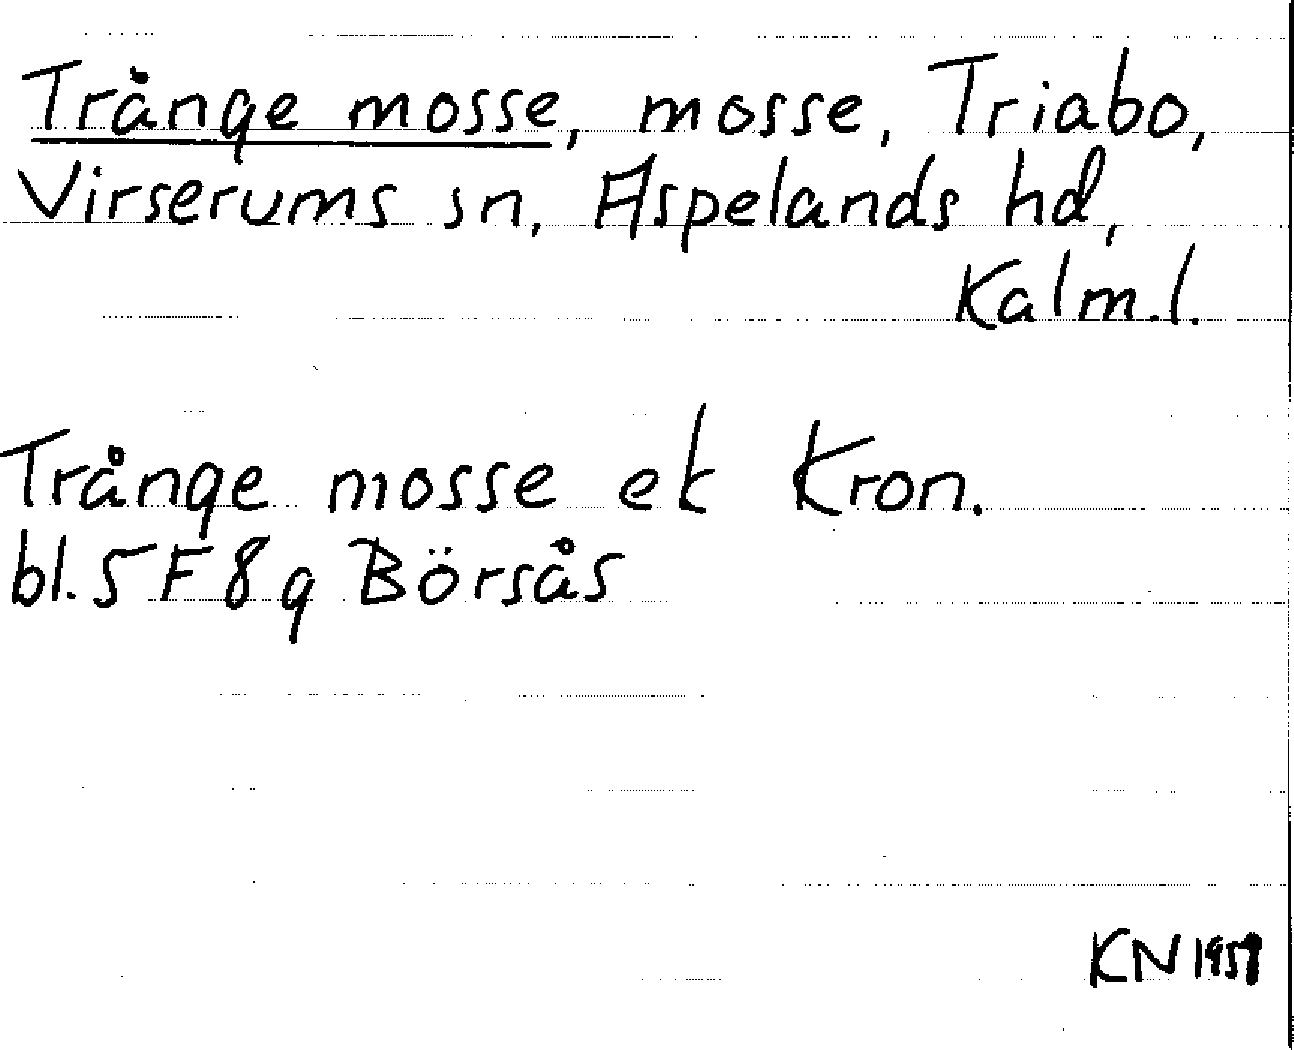 Trånge mosse, mosse, Triabo,
Virserums sn, Aspelands hd,
Kalm.l.
Trånge mosse ek Kron.
bl. 5 F 8 g Börsås
KN